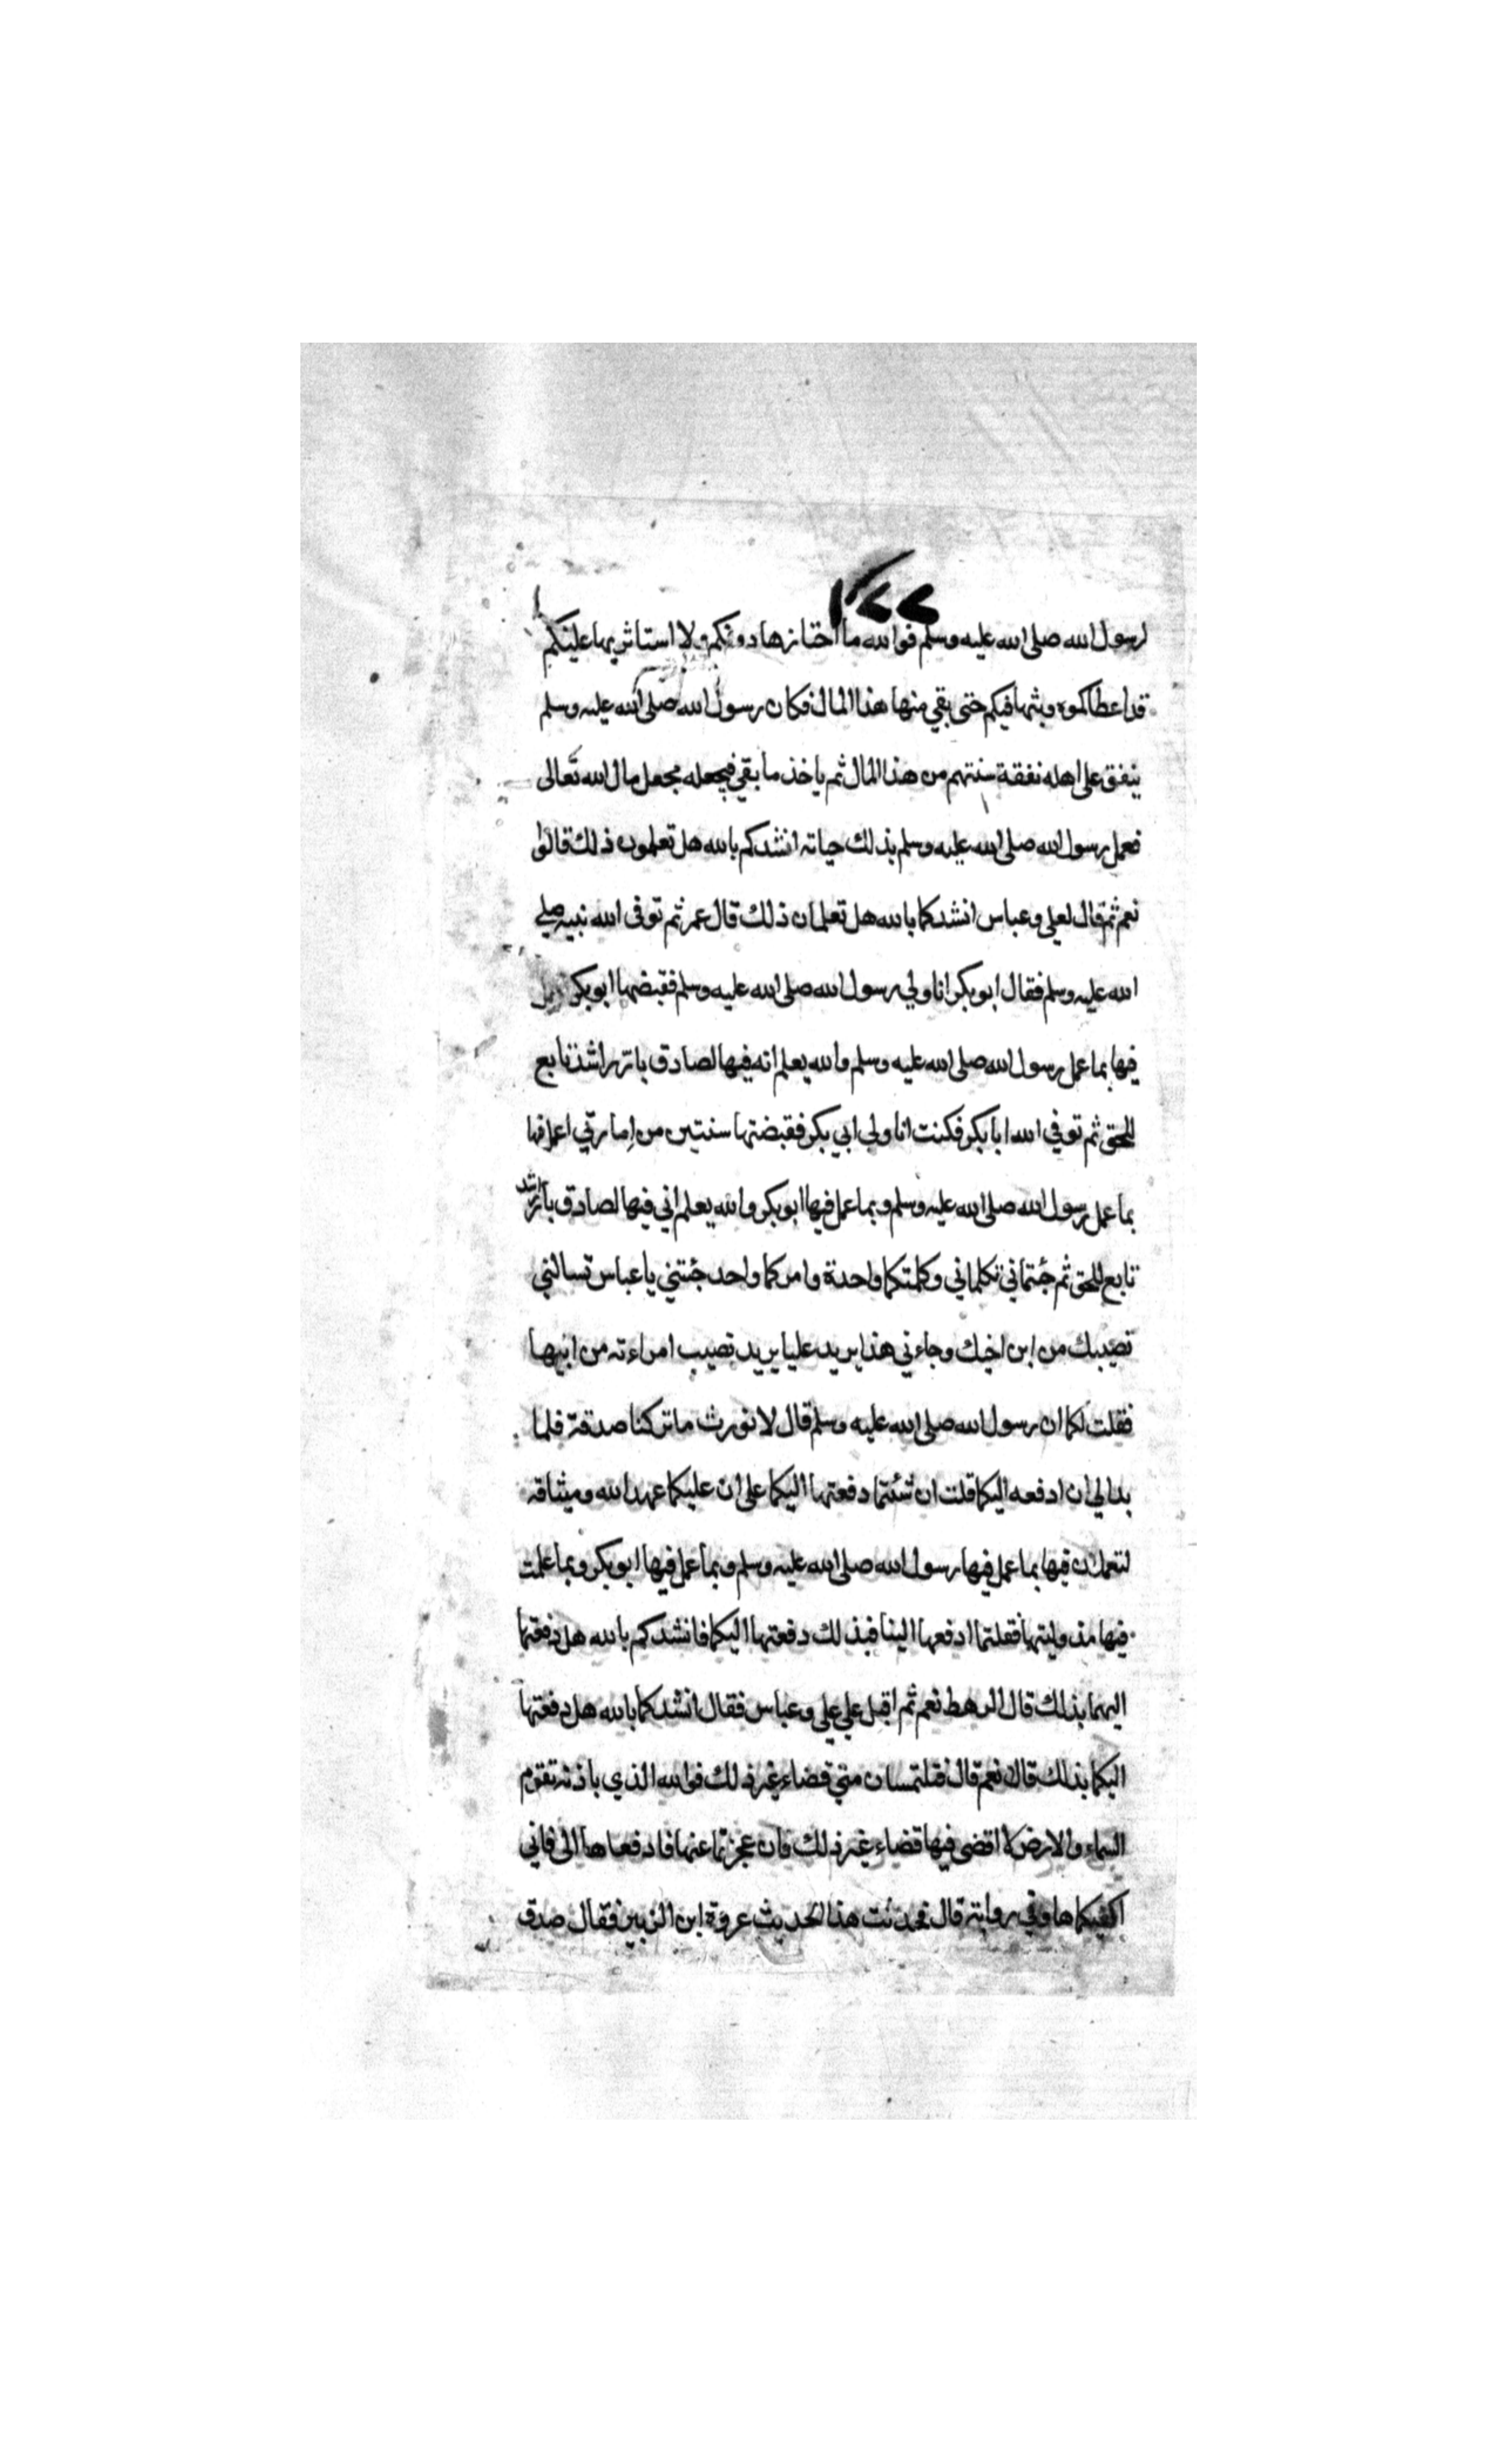 ١٢٢
لرسول الله صلى الله عليه وسلم فوالله ما احتازها دونكم ولا استاثر بها عليكم
قد اعطاكموه وبثها فيكم حتى بقي منها هذا المال فكان رسول الله صلى الله عليه وسلم
ينفق على اهله نفقة سنتهم من هذا المال ثم ياخذ ما بقي فيجعله مجعل مال الله تعالى
فعمل رسول الله صلى الله عليه وسلم بذلك حياته انشدكم بالله هل تعلمون ذلك قالوا
نعم ثم قال لعلي وعباس انشدكما بالله هل تعلمان ذلك قال عمر ثم توفى الله نبيه صلى
الله عليه وسلم فقال ابو بكر انا ولي رسول الله صلى الله عليه وسلم فقبضها ابو بكر
فيها بما عمل رسول الله صلى الله عليه وسلم والله يعلم انه فيها لصادق بار راشد تابع
للحق ثم توفي الله ابا بكر فكنت انا ولي ابي بكر فقبضتها سنتين من امارتي اعمل فيها
بما عمل رسول الله صلى الله عليه وسلم وبما عمل فيها ابو بكر والله يعلم اني فيها لصادق بار راشد
تابع للحق ثم جئتماني تكلماني وكلمتكما واحدة وامركما واحد جئتني يا عباس تسالني
نصيبك من ابن اخيك وجاءني هذا يريد عليا يريد نصيب امراءته من ابيها
فقلت لكما ان رسول الله صلى الله عليه وسلم قال لا نورث ما تركنا صدقة فلما
بدا لي ان ادفعه اليكما قلت ان شئتما دفعتها اليكما على ان عليكما عهد الله وميثاقه
لتعملان فيها بما عمل فيها رسول الله صلى الله عليه وسلم وبما عمل فيها ابو بكر وبما عملت
فيها منذ وليتها فقلتما ادفعها الينا فبذلك دفعتها اليكما فانشدكم بالله هل دفعتها
اليهما بذلك قال الرهط نعم ثم اقبل علي علي وعباس فقال انشدكما بالله هل دفعتها
اليكما بذلك قالا نعم قال فتلتمسان مني قضاء غير ذلك فوالله الذي باذنه تقوم
السماء والارض لا اقضى فيها قضاء غير ذلك فان عجزتما عنها فادفعاها الى فاني
اكفيكماها وفي رواية قال فحدثت هذا الحديث عروة ابن الزبير فقال صدق